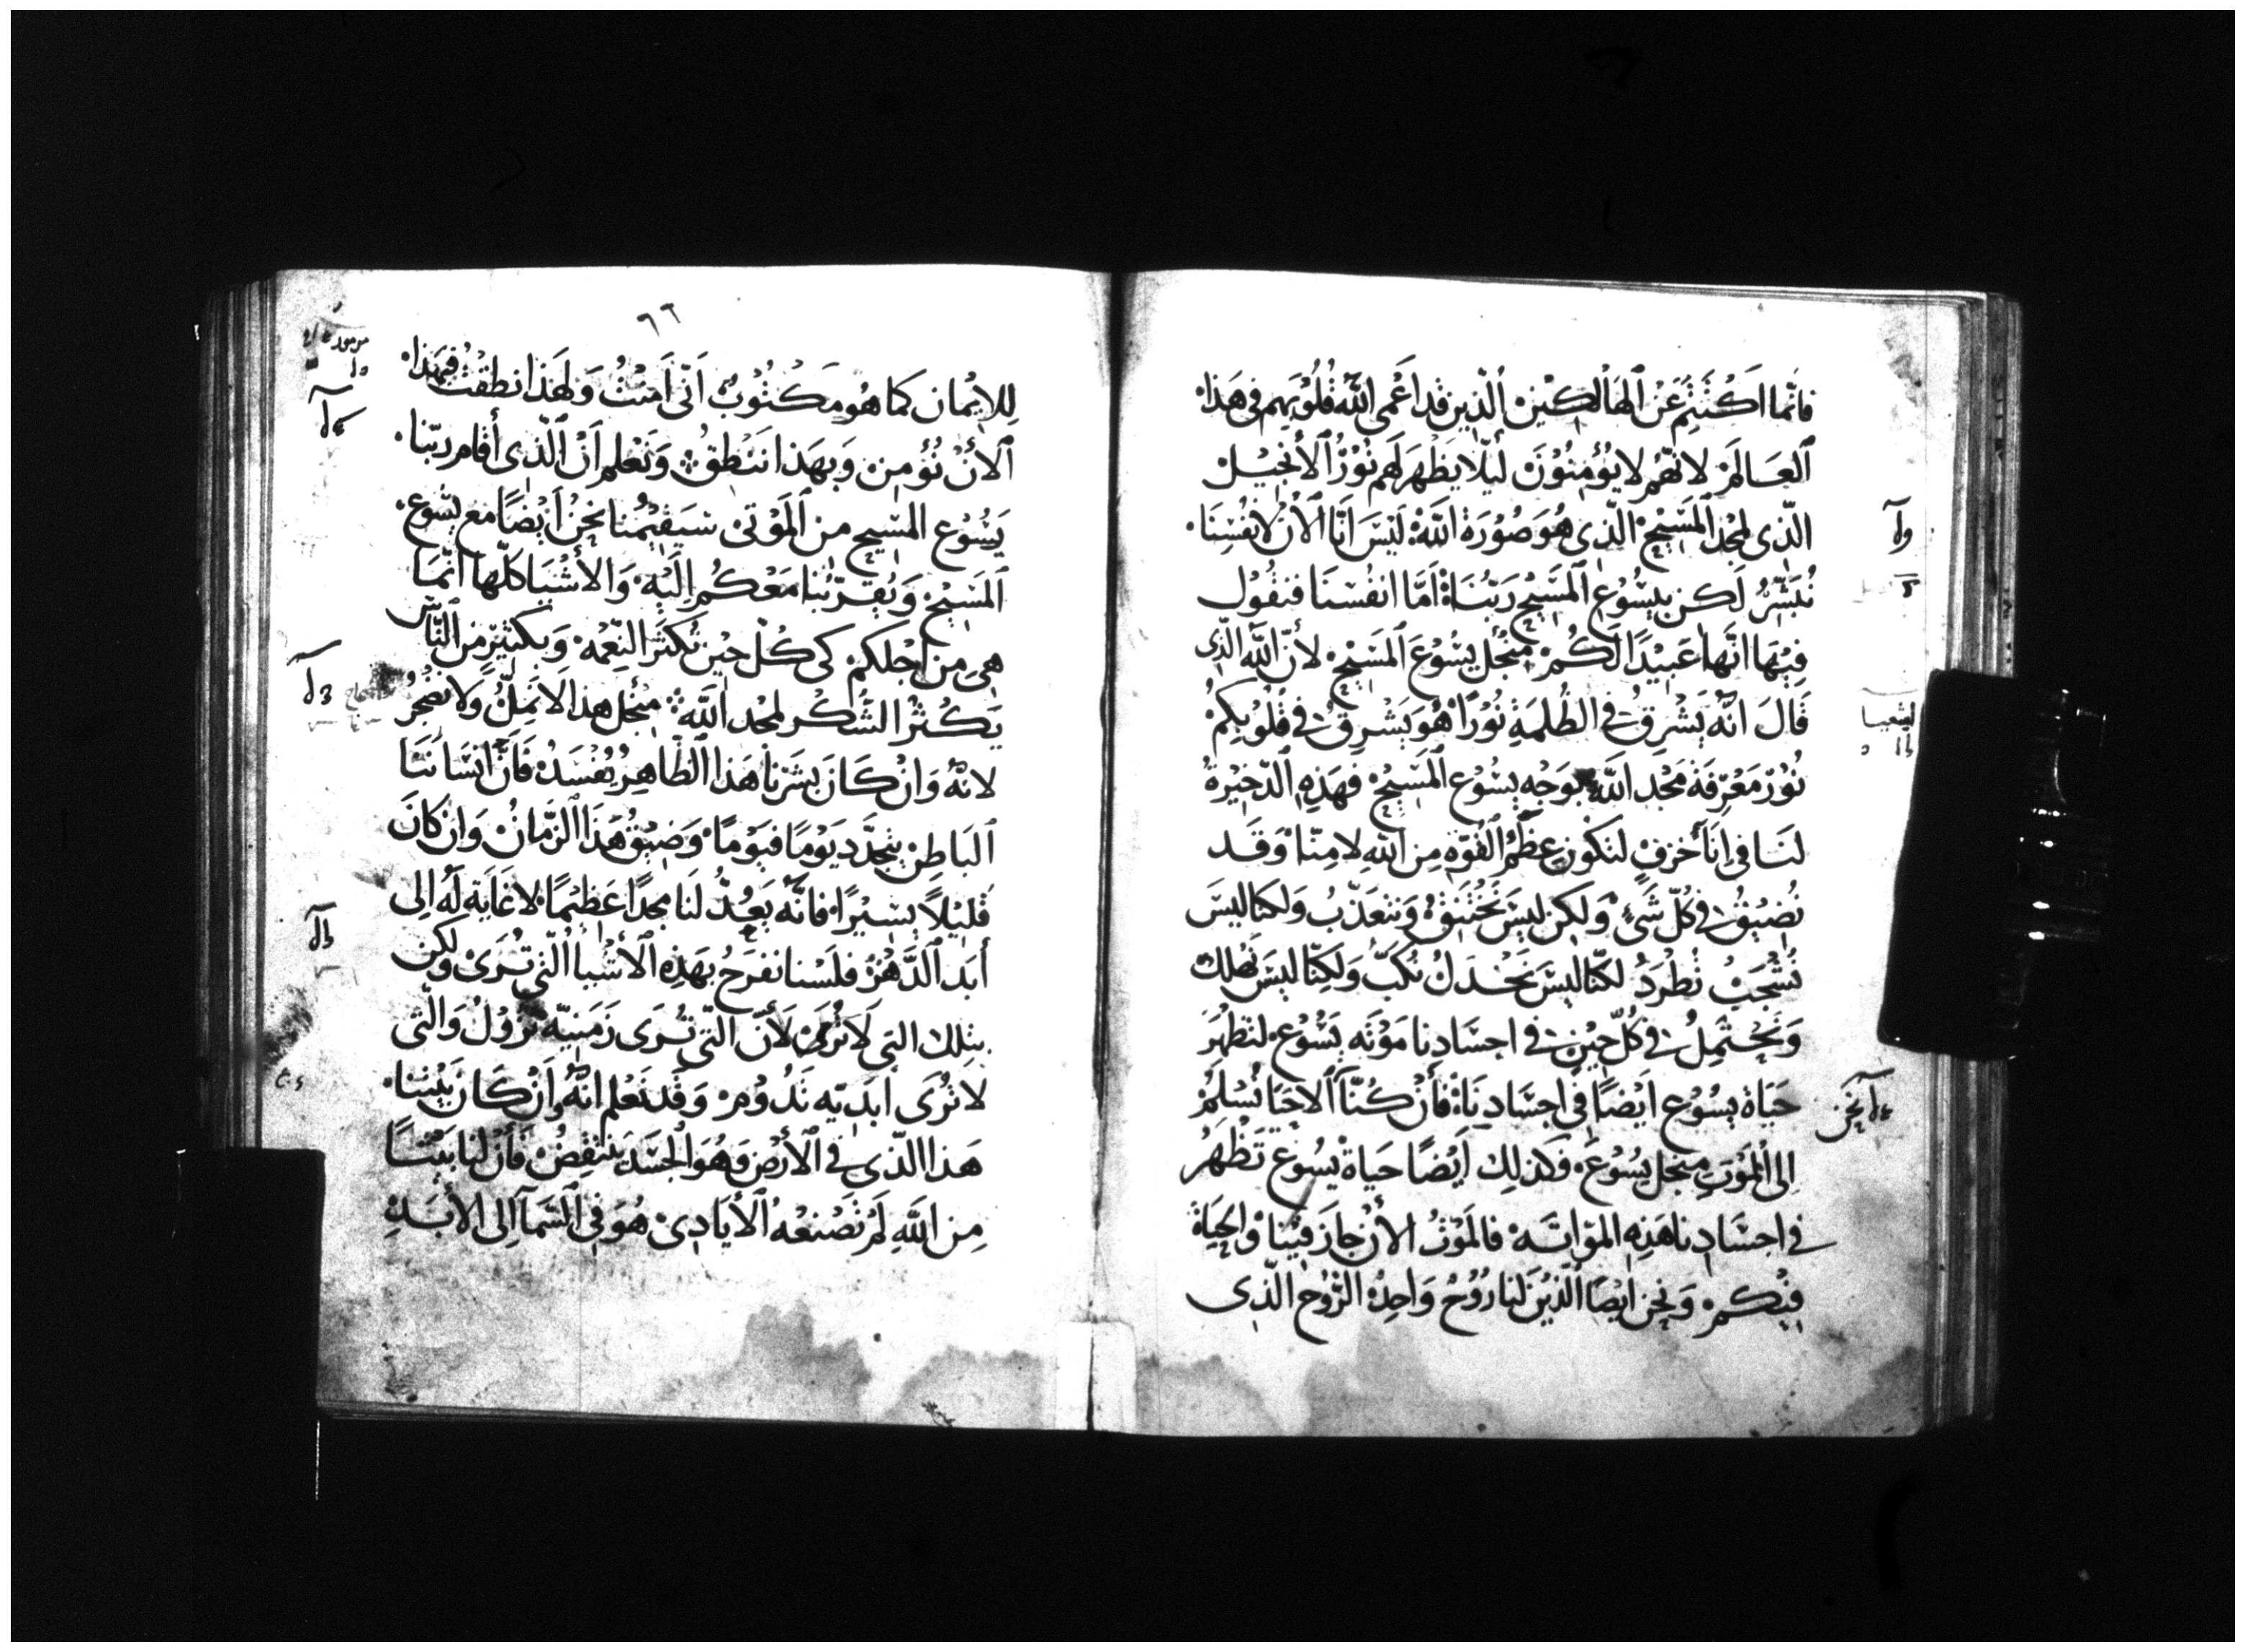 فانما اكتتم عن الهالكين الذين قد اعمى الله قلوبهم في هذا
العالم لانهم لا يؤمنون ليلا يظهر لهم نور الانجيل
الذى لمجد المسيح الذى هو صورة الله ليس انا الان لانفسنا
نبشر لكن بيسوع المسيح ربنا اما انفسنا فنقول
فيها انها عبيدا لكم منجل يسوع المسيح لان الله الذى
قال انه يشرق في الظلمة نورا هو يشرق في قلوبكم
نور معرفة مجد الله بوجه يسوع المسيح فهذه الذخيرة
لنا في انا خزف لتكون عظم القوة من الله لا منا وقد
نضيق في كل شىء ولكن ليس نختنق ونتعذب ولكنا ليس
نشجب نطرد لكنا ليس نخدل نكب ولكنا ليس نهلك
ونحتمل في كل حين في اجسادنا موته يسوع لتظهر
حياة يسوع ايضا في اجسادنا فأن كنا الاحيا نسلم
الى الموت منجل يسوع فكذلك ايضا حياة يسوع تظهر
في اجسادنا هذه المواته فالموت الأن جاز فينا والحياة
فيكم ونحن ايضا الذين لنا روح واحد الروح الذى
ليشعيا
نحن
٦٦
للايمان كما هو مكتوب انى امنت ولهذا نطقت فبهذا
الأن نؤمن وبهذا ننطق ونعلم ان الذى أقام ربنا
يسوع المسيح من الموتى سيقيمنا نحن ايضا مع يسوع
المسيح ويقربنا معكم اليه والأشيا كلها انما
هى من اجلكم كى كل حين تكثر النعمه وبكثير من الناس
يكثر الشكر لمجد الله منجل هذا لا نمل ولا نضجر
لانه وان كان بشرنا هذا الظاهر يفسد فأن انساننا
الباطن يتجدد يوما فيوما وضيق هذا الزمان وان كان
قليلاً يسيرا فانه يعد لنا مجدا عظيما لا غاية له الى
أبد الدهر فلسنا نفرح بهذه الأشيا التى ترى ولكن
بتلك التى لا ترى لأن التى ترى زمنيه تزول والتى
لا ترى ابديه تدوم وقد نعلم انه وان كان بيتنا
هذا الذى في الأرض وهو الجسد ينتقض فأن لنا بيتا
من الله لم تصنعه الأيادى هو في السما الى الأبد